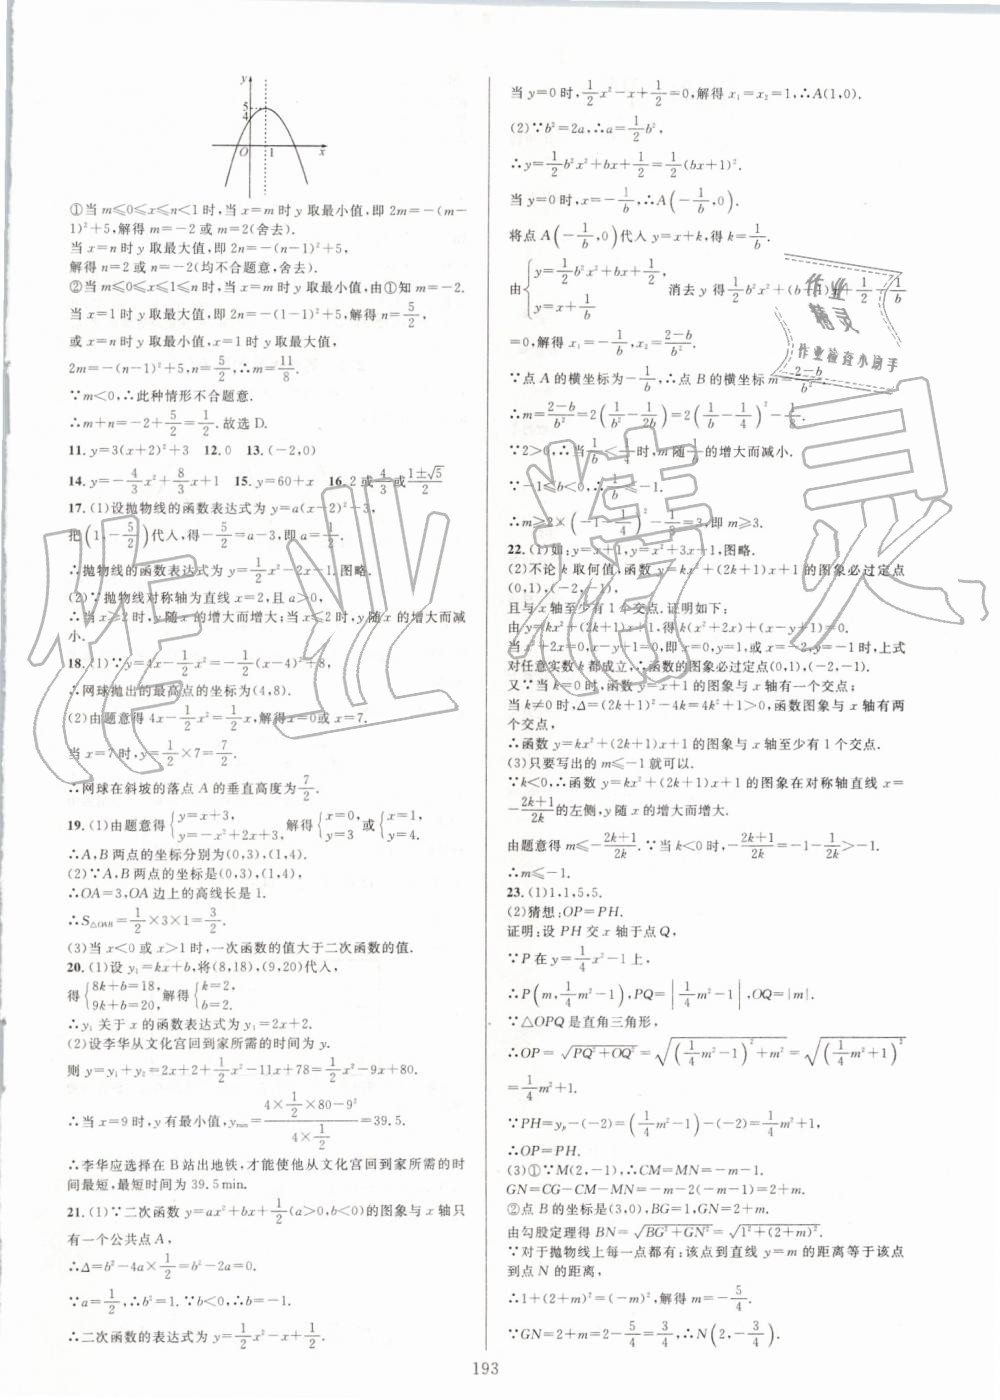 y
5
4
O
1
x
①当 m≤0≤x≤n<1 时,当 x=m 时 y 取最小值,即 2m=-(m-
1)²+5,解得 m=-2 或 m=2(舍去).
当 x=n 时 y 取最大值,即 2n=-(n-1)²+5,
解得 n=2 或 n=-2(均不合题意,舍去).
②当 m≤0≤x≤1≤n 时,当 x=m 时 y 取最小值,由①知 m=-2.
当 x=1 时 y 取最大值,即 2n=-(1-1)²+5,解得 n=5/2,
或 x=n 时 y 取最小值,x=1 时 y 取最大值,
2m=-(n-1)²+5,n=5/2,∴m=11/8.
∵m<0,∴此种情形不合题意.
∴m+n=-2+5/2=1/2.故选 D.
11. y=3(x+2)²+3 12. 0 13. (-2,0)
14. y=-4/3x²+8/3x+1 15. y=60+x 16. 2 或 4/3 或 (1±√5)/2
17. (1)设抛物线的函数表达式为 y=a(x-2)²-3,
把(1,-5/2)代入,得-5/2=a-3,即 a=1/2.
∴抛物线的函数表达式为 y=1/2x²-2x-1.图略.
(2)∵抛物线对称轴为直线 x=2,且 a>0,
∴当 x≥2 时,y 随 x 的增大而增大;当 x≤2 时,y 随 x 的增大而减
小.
18. (1)∵y=4x-1/2x²=-1/2(x-4)²+8,
∴网球抛出的最高点的坐标为(4,8).
(2)由题意得 4x-1/2x²=1/2x,解得 x=0 或 x=7.
当 x=7 时,y=1/2×7=7/2.
∴网球在斜坡的落点 A 的垂直高度为7/2.
19. (1)由题意得{y=x+3, y=-x²+2x+3, 解得{x=0, y=3 或{x=1, y=4.
∴A,B 两点的坐标分别为(0,3),(1,4).
(2)∵A,B 两点的坐标是(0,3),(1,4),
∴OA=3,OA 边上的高线长是 1.
∴S△OAB=1/2×3×1=3/2.
(3)当 x<0 或 x>1 时,一次函数的值大于二次函数的值.
20. (1)设 y₁=kx+b,将(8,18),(9,20)代入,
得{8k+b=18, 9k+b=20, 解得{k=2, b=2.
∴y₁ 关于 x 的函数表达式为 y₁=2x+2.
(2)设李华从文化宫回到家所需的时间为 y.
则 y=y₁+y₂=2x+2+1/2x²-11x+78=1/2x²-9x+80.
∴当 x=9 时,y 有最小值,yₘᵢₙ=(4×1/2×80-9²)/(4×1/2)=39.5.
∴李华应选择在 B 站出地铁,才能使他从文化宫回到家所需的时
间最短,最短时间为 39.5 min.
21. (1)∵二次函数 y=ax²+bx+1/2(a>0,b<0)的图象与 x 轴只
有一个公共点 A,
∴Δ=b²-4a×1/2=b²-2a=0.
∵a=1/2,∴b²=1. ∵b<0,∴b=-1.
∴二次函数的表达式为 y=1/2x²-x+1/2.
当 y=0 时,1/2x²-x+1/2=0,解得 x₁=x₂=1,∴A(1,0).
(2)∵b²=2a,∴a=1/2b²,
∴y=1/2b²x²+bx+1/2=1/2(bx+1)².
当 y=0 时,x=-1/b,∴A(-1/b,0).
将点 A(-1/b,0)代入 y=x+k,得 k=1/b.
由{y=1/2b²x²+bx+1/2, y=x+1/b 消去 y 得1/2b²x²+(b-1)x+1/2-1/b
=0,解得 x₁=-1/b,x₂=(2-b)/b².
∵点 A 的横坐标为-1/b,∴点 B 的横坐标 m=(2-b)/b².
∴m=(2-b)/b²=2(1/b²-1/2b)=2(1/b-1/4)²-1/8.
∵2>0,∴当1/b<1/4时,m 随1/b的增大而减小.
∵-1≤b<0,∴1/b≤-1.
∴m≥2×(-1-1/4)²-1/8=3,即 m≥3.
22. (1)如:y=x+1,y=x²+3x+1.图略.
(2)不论 k 取何值,函数 y=kx²+(2k+1)x+1 的图象必过定点
(0,1),(-2,-1),
且与 x 轴至少有 1 个交点.证明如下:
由 y=kx²+(2k+1)x+1,得 k(x²+2x)+(x-y+1)=0.
当 x²+2x=0,x-y+1=0,即 x=0,y=1,或 x=-2,y=-1 时,上式
对任意实数 k 都成立,∴函数的图象必过定点(0,1),(-2,-1).
又∵当 k=0 时,函数 y=x+1 的图象与 x 轴有一个交点;
当 k≠0 时,Δ=(2k+1)²-4k=4k²+1>0,函数图象与 x 轴有两
个交点,
∴函数 y=kx²+(2k+1)x+1 的图象与 x 轴至少有 1 个交点.
(3)只要写出的 m≤-1 就可以.
∵k<0,∴函数 y=kx²+(2k+1)x+1 的图象在对称轴直线 x=
-(2k+1)/2k的左侧,y 随 x 的增大而增大.
由题意得 m≤-(2k+1)/2k. ∵当 k<0 时,-(2k+1)/2k=-1-1/2k>-1.
∴m≤-1.
23. (1)1,1,5,5.
(2)猜想:OP=PH.
证明:设 PH 交 x 轴于点 Q,
∵P 在 y=1/4x²-1 上,
∴P(m,1/4m²-1),PQ=|1/4m²-1|,OQ=|m|.
∵△OPQ 是直角三角形,
∴OP=√(PQ²+OQ²)=√((1/4m²-1)²+m²)=√((1/4m²+1)²)
=1/4m²+1.
∵PH=yₚ-(-2)=(1/4m²-1)-(-2)=1/4m²+1,
∴OP=PH.
(3)①∵M(2,-1),∴CM=MN=-m-1.
GN=CG-CM-MN=-m-2(-m-1)=2+m.
②点 B 的坐标是(3,0),BG=1,GN=2+m.
由勾股定理得 BN=√(BG²+GN²)=√(1²+(2+m)²).
∵对于抛物线上每一点都有:该点到直线 y=m 的距离等于该点
到点 N 的距离,
∴1+(2+m)²=(-m)²,解得 m=-5/4.
∵GN=2+m=2-5/4=3/4,∴N(2,-3/4).
作业
精灵
作业检查小助手
作业精灵
193